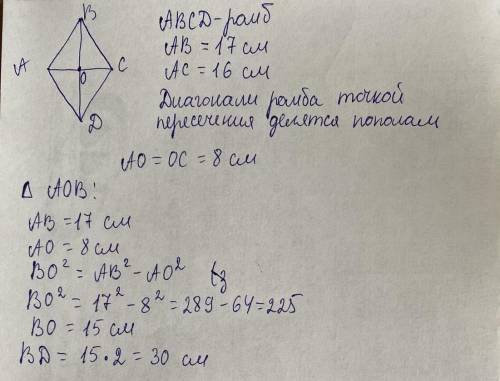 B
A O C
D
ABCD-ромб
AB = 17 см
AC = 16 см
Диагонали ромба точкой
пересечения делятся пополам
AO = OC = 8 см
Δ AOB:
AB = 17 см
AO = 8 см
BO² = AB² - AO²
BO² = 17² - 8² = 289 - 64 = 225
BO = 15 см
BD = 15 • 2 = 30 см